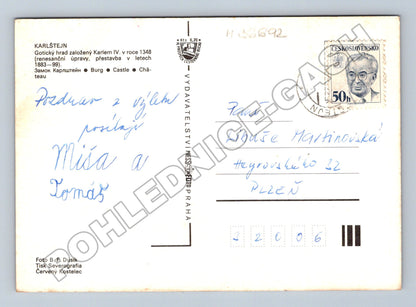 KARLŠTEJN
Gotický hrad založený Karlem IV. v roce 1348
(renesanční úpravy, přestavba v letech
1883—99).
Замок Карлштейн ● Burg ● Castle ● Châ-
teau
Pozdrav z výletu
posílají
Míša a
Tomáš
Foto B. P. Dusík
Tisk Severografia
Červený Kostelec
VYDAVATELSTVÍ PRAHA
ČESKOSLOVENSKO
50h
Paní
Libuše Martinovská
Hegrovského 32
PLZEŇ
3 2 0 0 6
POHLEDNICE-GASH